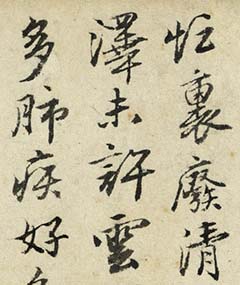 忙裏廢清
澤未許雲
多肺疾好